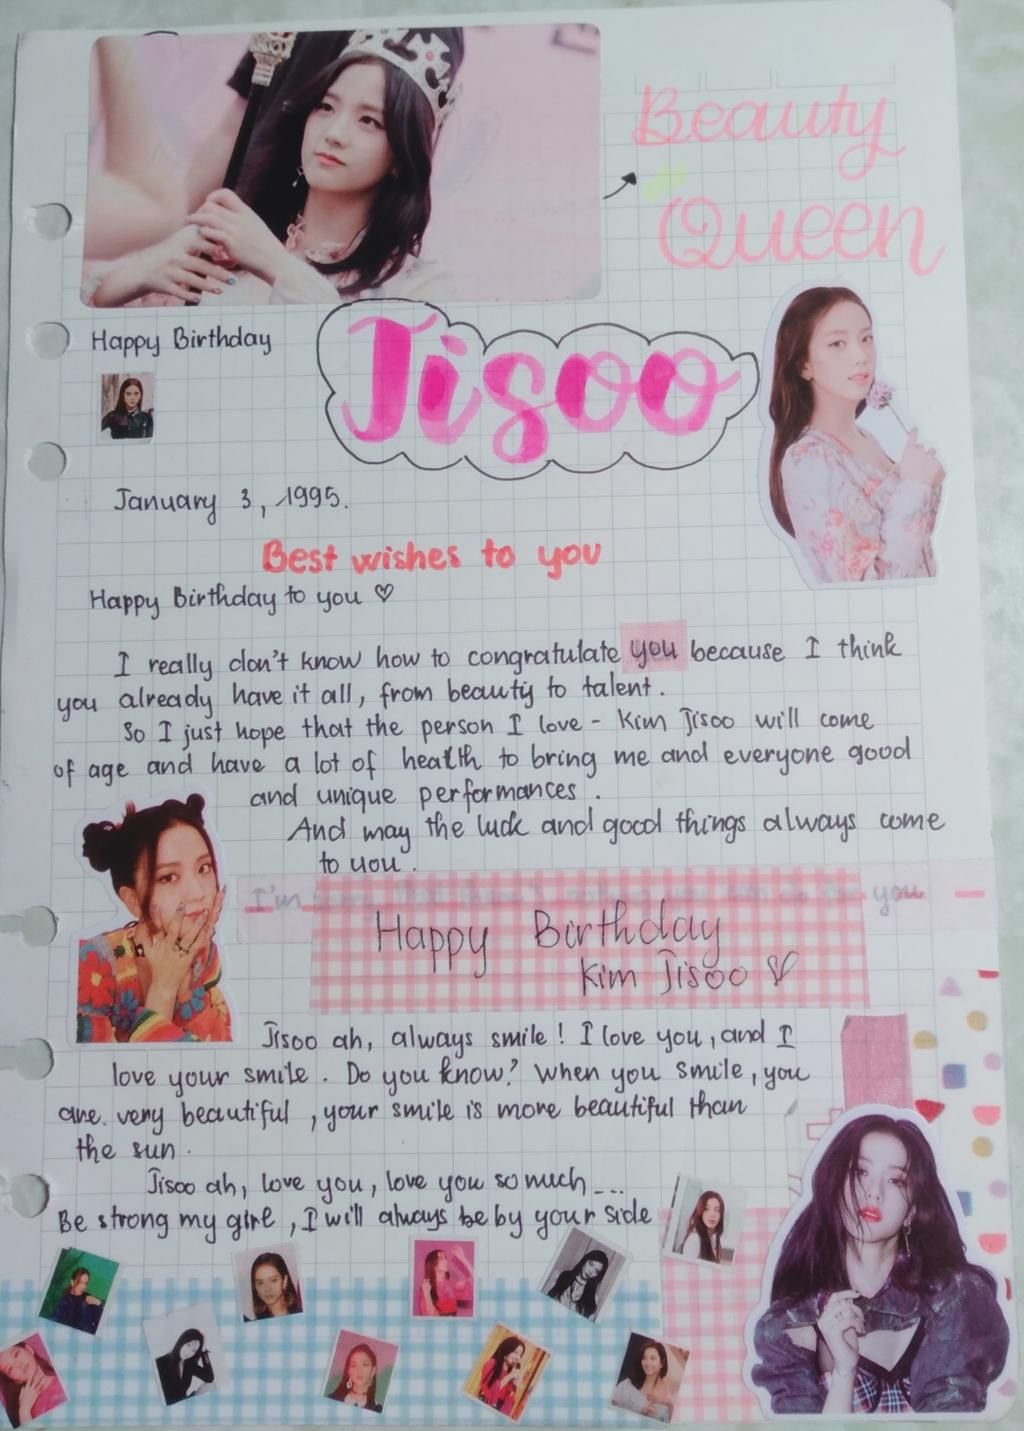 Beauty
Queen
Happy Birthday
Jisoo
January 3, 1995.
Best wishes to you
Happy Birthday to you ♡
I really don't know how to congratulate you because I think
you already have it all, from beauty to talent.
So I just hope that the person I love - Kim Jisoo will come
of age and have a lot of health to bring me and everyone good
and unique performances.
And may the luck and good things always come
to you.
I'm you
Happy Birthday
Kim Jisoo ♡
Jisoo ah, always smile! I love you, and I
love your smile. Do you know? When you smile, you
are very beautiful, your smile is more beautiful than
the sun.
Jisoo ah, love you, love you so much....
Be strong my girl, I will always be by your side